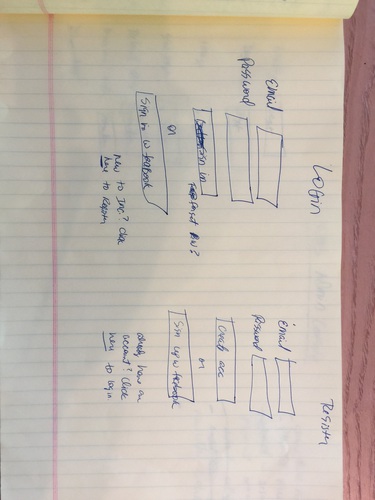 Login
Email
Password
Sign in
forgot PW?
or
Sign in w facebook
new to Inc.? Click
here to Register
Register
Email
Password
Create acc
or
Sign up w facebook
already have an
account? Click
here to login